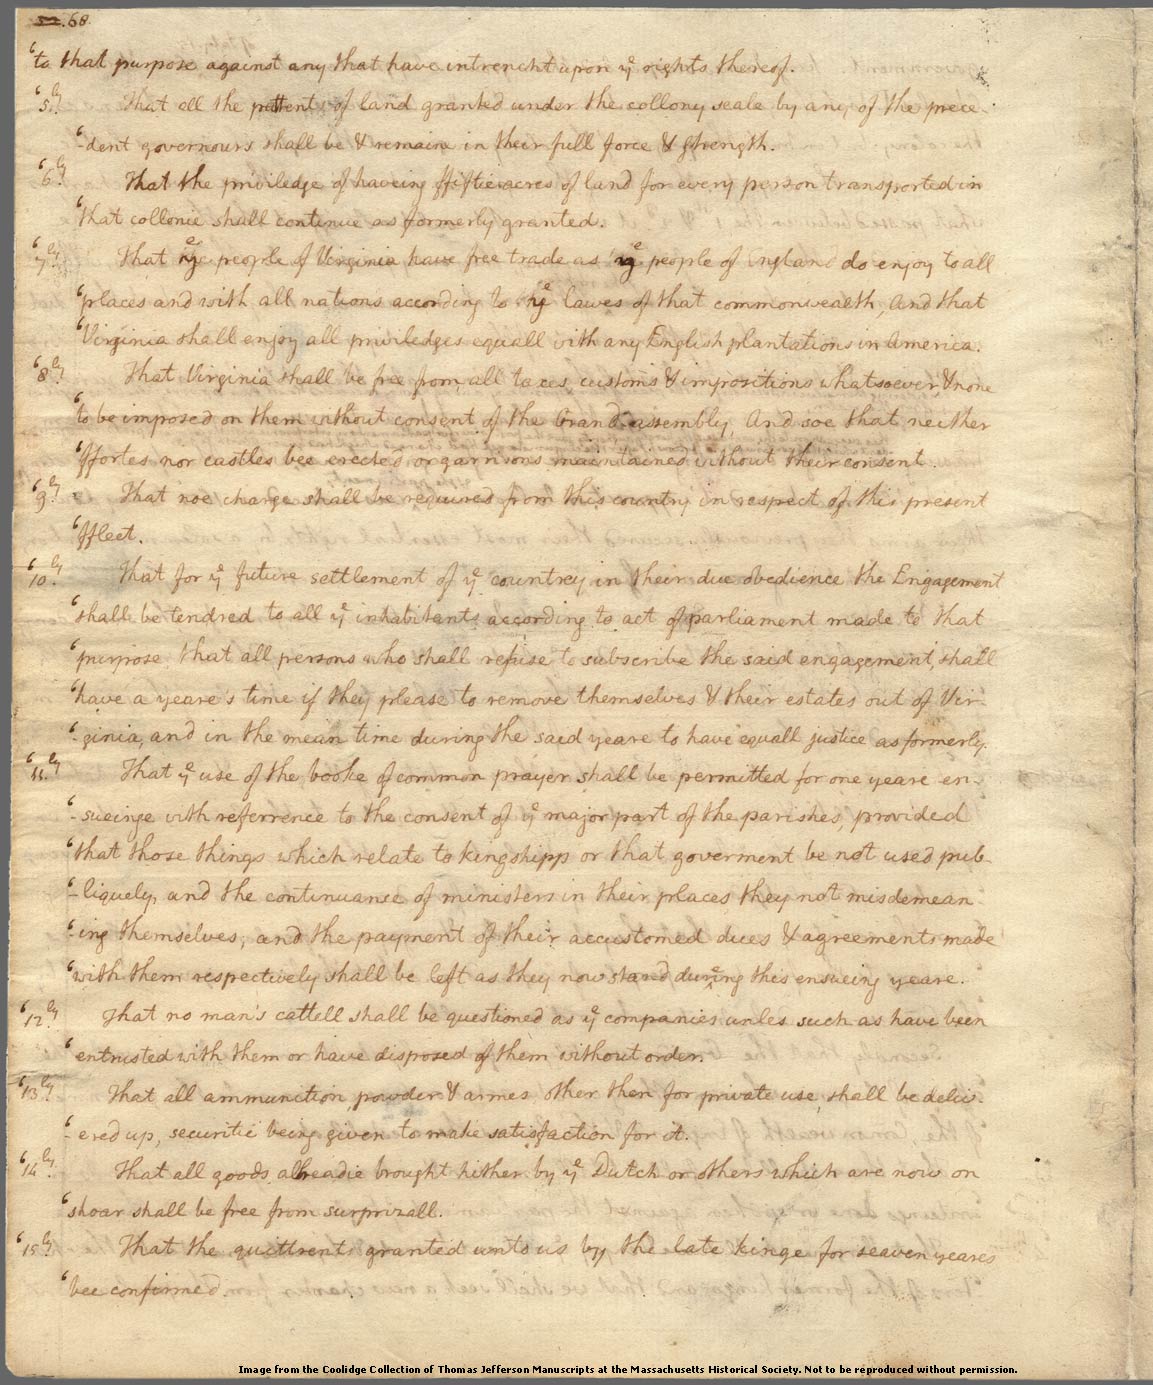 52. 68.
‘to that purpose against any that have intrencht upon yͤ rights thereof.
‘5ˡʸ. That all the pattents of land granted under the collony seale by any of the prece-
‘-dent governours shall be & remaine in their full force & strength.
‘6ˡʸ. That the priviledge of haveing ffiftie acres of land for every person transported in
‘that collonie shall continue as formerly granted.
‘7ˡʸ. That yͤ people of Virginia have free trade as yͤ people of England do enjoy to all
‘places and with all nations according to yͤ lawes of that commonwealth, And that
‘Virginia shall enjoy all priviledges equall with any English plantations in America.
‘8ˡʸ. That Virginia shall be free from all taxes, customs & impositions whatsoever, & none
‘to be imposed on them without consent of the Grand assembly, And soe that neither
‘ffortes nor castles bee erected or garrisons maintained without their consent.
‘9ˡʸ. That noe charge shall be required from this country in respect of this present
‘ffleet.
‘10ˡʸ. That for yͤ future settlement of yͤ countrey in their due obedience the Engagement
‘shall be tendred to all yͤ inhabitants according to act of parliament made to that
‘purpose, that all persons who shall refuse to subscribe the said engagement, shall
‘have a yeare's time if they please to remove themselves & their estates out of Vir-
‘-ginia, and in the mean time during the said yeare to have equall justice as formerly.
‘11ˡʸ. That yͤ use of the booke of common prayer shall be permitted for one yeare en-
‘-sueinge with referrence to the consent of yͤ major part of the parishes, provided
‘that those things which relate to kingshipp or that goverment be not used pub-
‘-liquely, and the continuance of ministers in their places, they not misdemean-
‘-ing themselves, and the payment of their accustomed dues & agreements made
‘with them respectively shall be left as they now stand during this ensueing yeare.
‘12ˡʸ. That no man's cattell shall be questioned as yͤ companies unles such as have been
‘entrusted with them or have disposed of them without order.
‘13ˡʸ. That all ammunition, powder & armes, other then for private use, shall be deliv-
‘-ered up, securitie being given to make satisfaction for it.
‘14ˡʸ. That all goods allreadie brought hither by yͤ Dutch or others which are now on
‘shoar shall be free from surprizall.
‘15ˡʸ. That the quittrents granted unto us by the late kinge for seaven yeares
‘bee confirmed.
Image from the Coolidge Collection of Thomas Jefferson Manuscripts at the Massachusetts Historical Society. Not to be reproduced without permission.